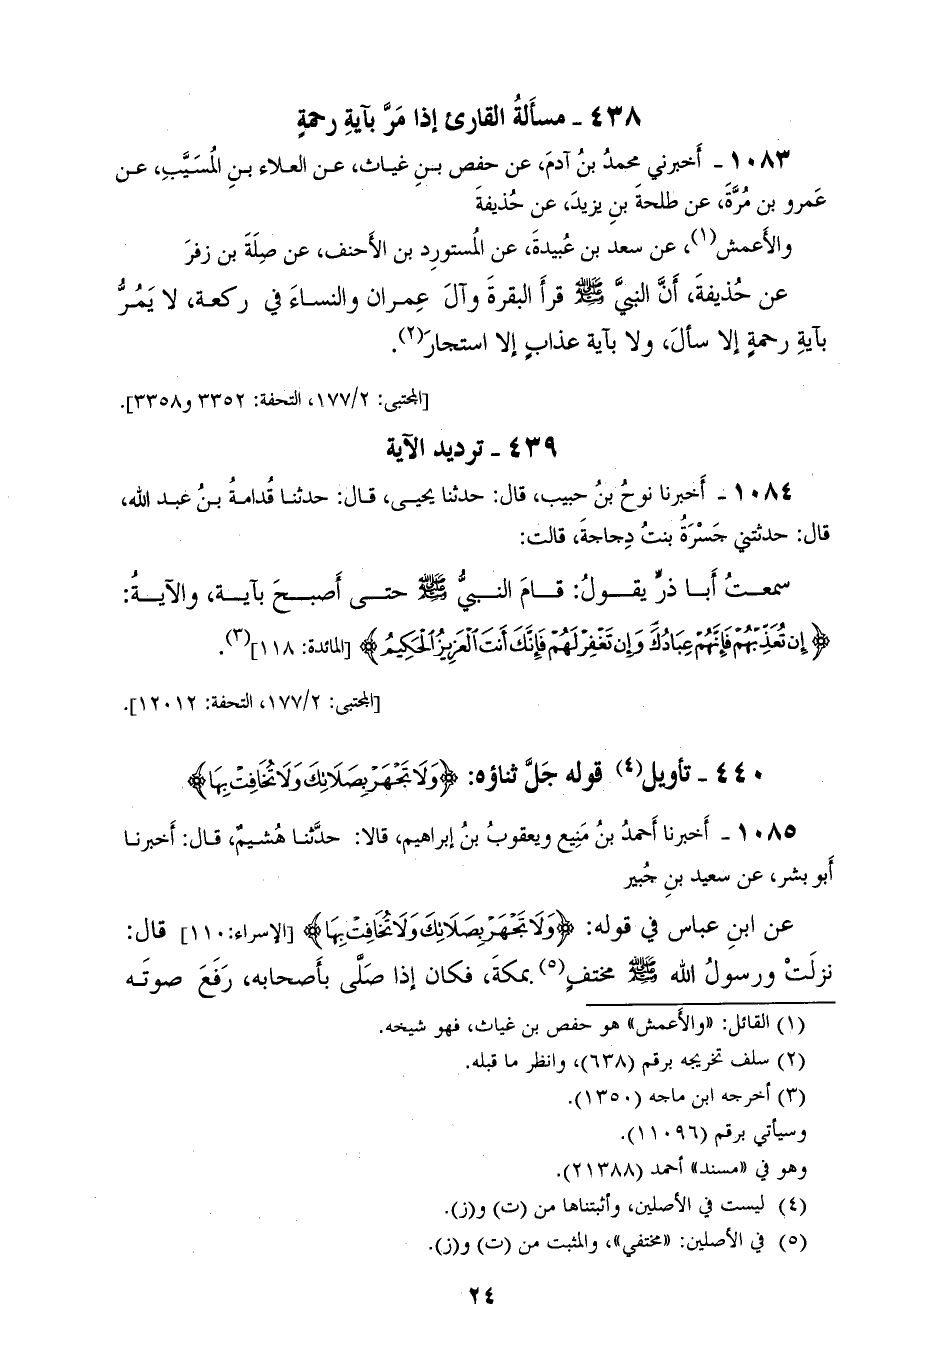 ٤٣٨ ـ مسألةُ القارئ إذا مَرَّ بآيةِ رحمةٍ
١٠٨٣ ـ أَخبرني محمدُ بنُ آدمَ، عن حفص بنِ غياث، عن العلاء بنِ المُسَيَّبِ، عن
عَمرو بن مُرَّةَ، عن طلحةَ بنِ يزيدَ، عن حُذيفةَ
والأَعمش(١)، عن سعد بن عُبيدةَ، عن المُستورِد بن الأَحنف، عن صِلَةَ بن زفرَ
عن حُذيفةَ، أَنَّ النبيَّ ﷺ قرأَ البقرةَ وآلَ عِمران والنساءَ في ركعة، لا يَمُرُّ
بآيةِ رحمةٍ إلا سأَلَ، ولا بآية عذابٍ إلا استجارَ(٢).
[المجتبى: ١٧٧/٢، التحفة: ٣٣٥٢ و٣٣٥٨].
٤٣٩ ـ ترديد الآية
١٠٨٤ ـ أَخبرنا نوحُ بنُ حبيب، قال: حدثنا يحيى، قال: حدثنا قُدامةُ بنُ عبد الله،
قال: حدثتني جَسْرَةُ بنتُ دِجاجةَ، قالت:
سمعتُ أَبا ذرٍّ يقولُ: قامَ النبيُّ ﷺ حتى أَصبحَ بآية، والآيةُ:
﴿إِن تُعَذِّبْهُمْ فَإِنَّهُمْ عِبَادُكَ وَإِن تَغْفِرْ لَهُمْ فَإِنَّكَ أَنتَ الْعَزِيزُ الْحَكِيمُ﴾ [المائدة: ١١٨](٣).
[المجتبى: ١٧٧/٢، التحفة: ١٢٠١٢].
٤٤٠ ـ تأويل(٤) قوله جَلَّ ثناؤه: ﴿وَلَا تَجْهَرْ بِصَلَاتِكَ وَلَا تُخَافِتْ بِهَا﴾
١٠٨٥ ـ أَخبرنا أَحمدُ بنُ مَنِيع ويعقوبُ بنُ إبراهيم، قالا: حدَّثنا هُشيمٌ، قال: أَخبرنا
أَبو بشر، عن سعيد بنِ جُبير
عن ابنِ عباس في قوله: ﴿وَلَا تَجْهَرْ بِصَلَاتِكَ وَلَا تُخَافِتْ بِهَا﴾ [الإسراء:١١٠] قال:
نزلَتْ ورسولُ الله ﷺ مختفٍ(٥) بمكةَ، فكان إذا صَلَّى بأَصحابه، رفَعَ صوتَه
(١) القائل: «والأَعمش» هو حفص بن غياث، فهو شيخه.
(٢) سلف تخريجه برقم (٦٣٨)، وانظر ما قبله.
(٣) أخرجه ابن ماجه (١٣٥٠).
وسيأتي برقم (١١٠٩٦).
وهو في «مسند» أحمد (٢١٣٨٨).
(٤) ليست في الأصلين، وأثبتناها من (ت) و(ز).
(٥) في الأصلين: «مختفي»، والمثبت من (ت) و(ز).
٢٤